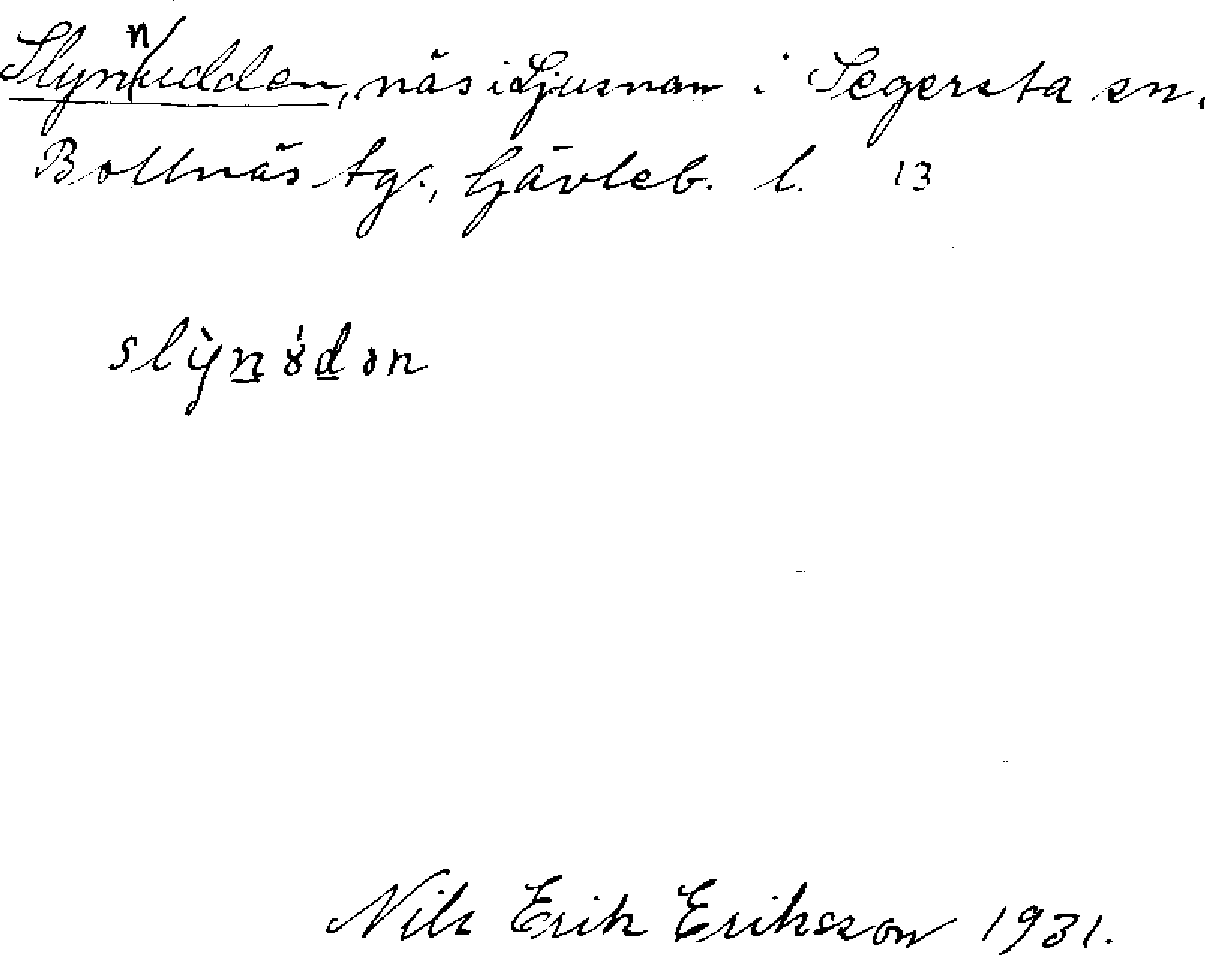 Slynnudden, näs i Ljusnan i Segersta sn.
Bollnäs tg., Gävleb. l. 13
slỳn̲ɤ́d̲ən
Nils Erik Eriksson 1931.